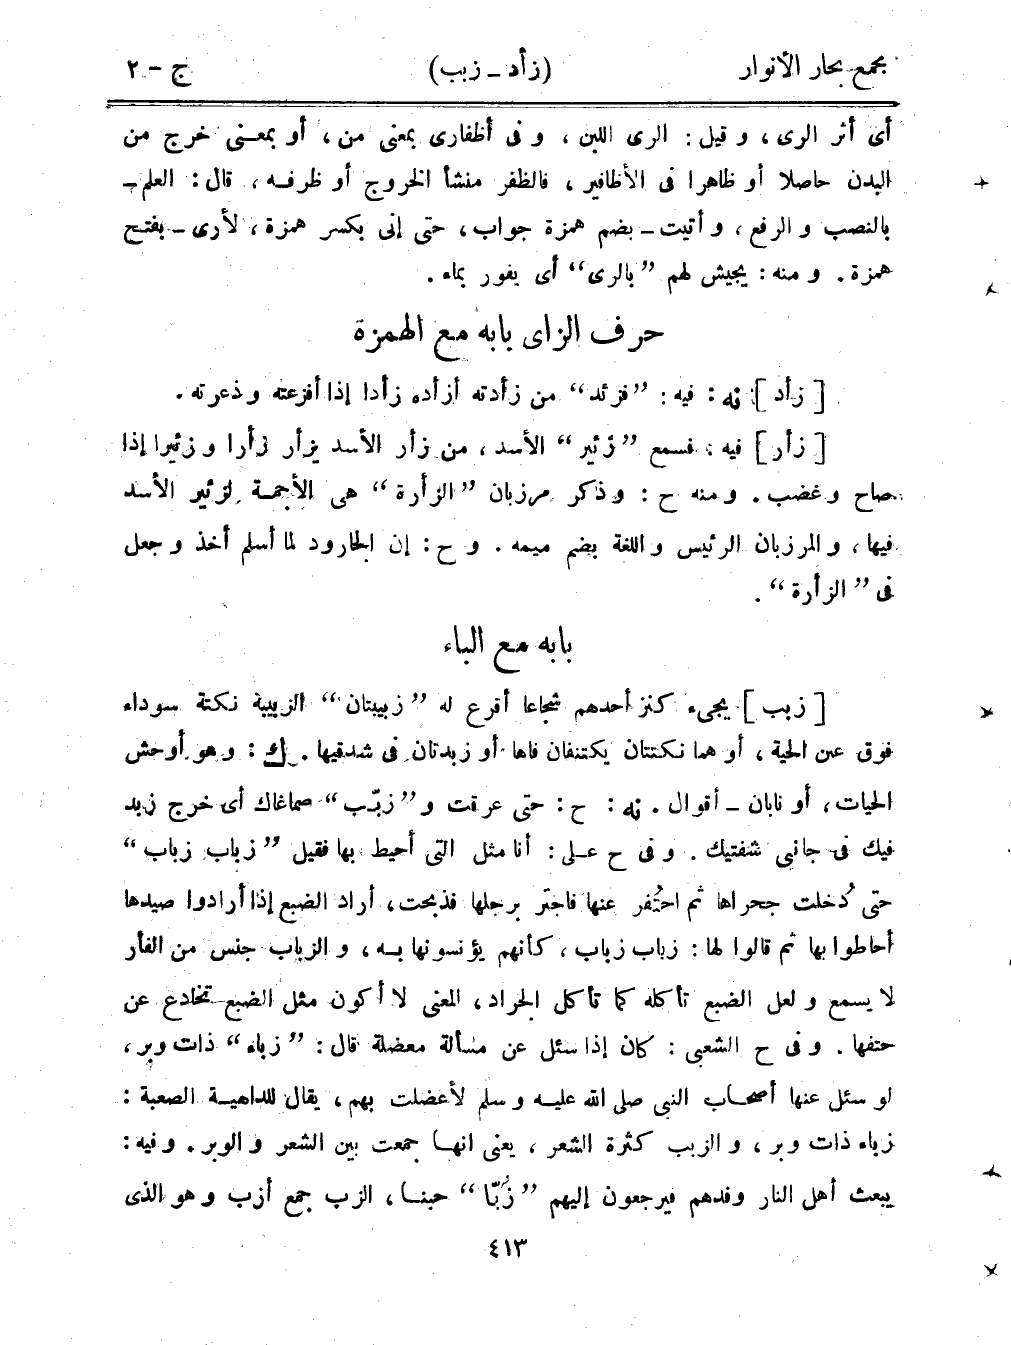 مجمع بحار الأنوار (زأد ـ زبب) ج - ٢
أى أثر الرى، و قيل: الرى اللبن، و فى أظفارى بمعنى من، أو بمعنى خرج من
البدن حاصلا أو ظاهرا فى الأظافير، فالظفر منشأ الخروج أو ظرفه، قال: العلم ـ
بالنصب و الرفع، و أتيت ـ بضم همزة جواب، حتى إنى بكسر همزة، لأرى ـ بفتح
همزة. و منه: يجيش لهم ”بالرى“ أى يفور بماء.
حرف الزاى بابه مع الهمزة
[ زأد ] نه: فيه: ”فزئد“ من زأدته أزأده زأدا إذا أفزعته و ذعرته.
[ زأر ] فيه: فسمع ”زئير“ الأسد، من زأر الأسد يزأر زأرا و زئيرا إذا
صاح و غضب. و منه ح: و ذكر مرزبان ”الزأرة“ هى الأجمة لزئير الأسد
فيها، و المرزبان الرئيس و اللغة بضم ميمه. و ح: إن الجارود لما أسلم أخذ و جعل
فى ”الزأرة“.
بابه مع الباء
[ زبب ] يجىء كنز أحدهم شجاعا أقرع له ”زبيبتان“ الزبيبة نكتة سوداء
فوق عين الحية، أو هما نكتتان يكتنفان فاها أو زبدتان فى شدقيها. ك: و هو أوحش
الحيات، أو نابان ـ أقوال. نه: ح: حتى عرقت و ”زبّب“ صماغاك أى خرج زبد
فيك فى جانبى شفتيك. و فى ح على: أنا مثل التى أحيط بها فقيل ”زباب زباب“
حتى دُخلت جحراها ثم احتُفر عنها فاجتر برجلها فذبحت، أراد الضبع إذا أرادوا صيدها
أحاطوا بها ثم قالوا لها: زباب زباب، كأنهم يؤنسونها به، و الزباب جنس من الفأر
لا يسمع و لعل الضبع تأكله كما تأكل الجراد، المعنى لا أكون مثل الضبع تخادع عن
حتفها. و فى ح الشعبى: كان إذا سئل عن مسألة معضلة قال: ”زباء“ ذات وبر،
لو سئل عنها أصحاب النبى صلى الله عليه و سلم لأعضلت بهم، يقال للداهية الصعبة:
زباء ذات وبر، و الزبب كثرة الشعر، يعنى انها جمعت بين الشعر و الوبر. و فيه:
يبعث أهل النار وفدهم فيرجعون إليهم ”زُبّا“ حبنا، الزب جمع أزب و هو الذى
٤١٣